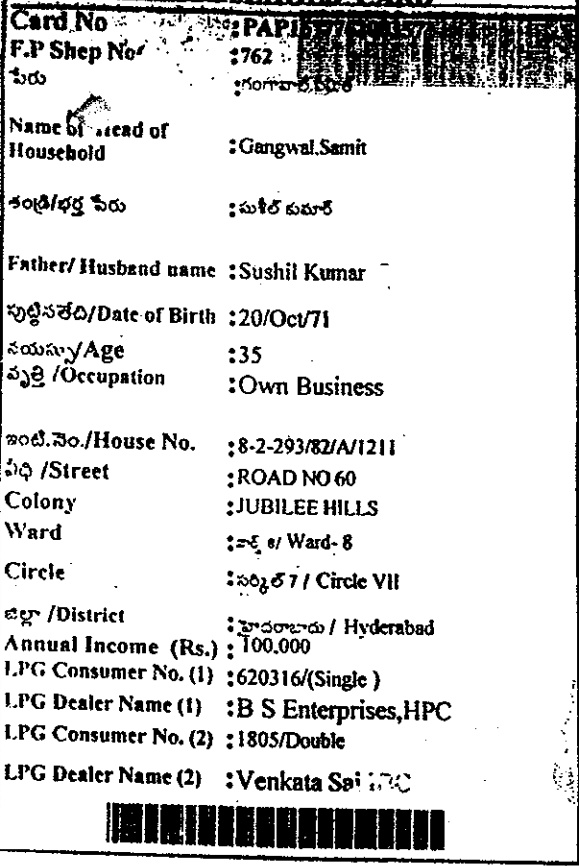 Card No
F.P Shop No :762
పేరు
Name of Head of
Household :Gangwal.Samit
తండ్రి/భర్త పేరు :సుశీల్ కుమార్
Father/ Husband name :Sushil Kumar
పుట్టినతేది/Date of Birth :20/Oct/71
వయస్సు/Age :35
వృత్తి /Occupation :Own Business
ఇంటి.నెం./House No. :8-2-293/82/A/1211
వీధి /Street :ROAD NO 60
Colony :JUBILEE HILLS
Ward :వార్డ్ 8/ Ward- 8
Circle :సర్కిల్ 7 / Circle VII
జిల్లా /District :హైదరాబాదు / Hyderabad
Annual Income (Rs.) : 100,000
LPG Consumer No. (1) :620316/(Single )
LPG Dealer Name (1) :B S Enterprises,HPC
LPG Consumer No. (2) :1805/Double
LPG Dealer Name (2) :Venkata Sai